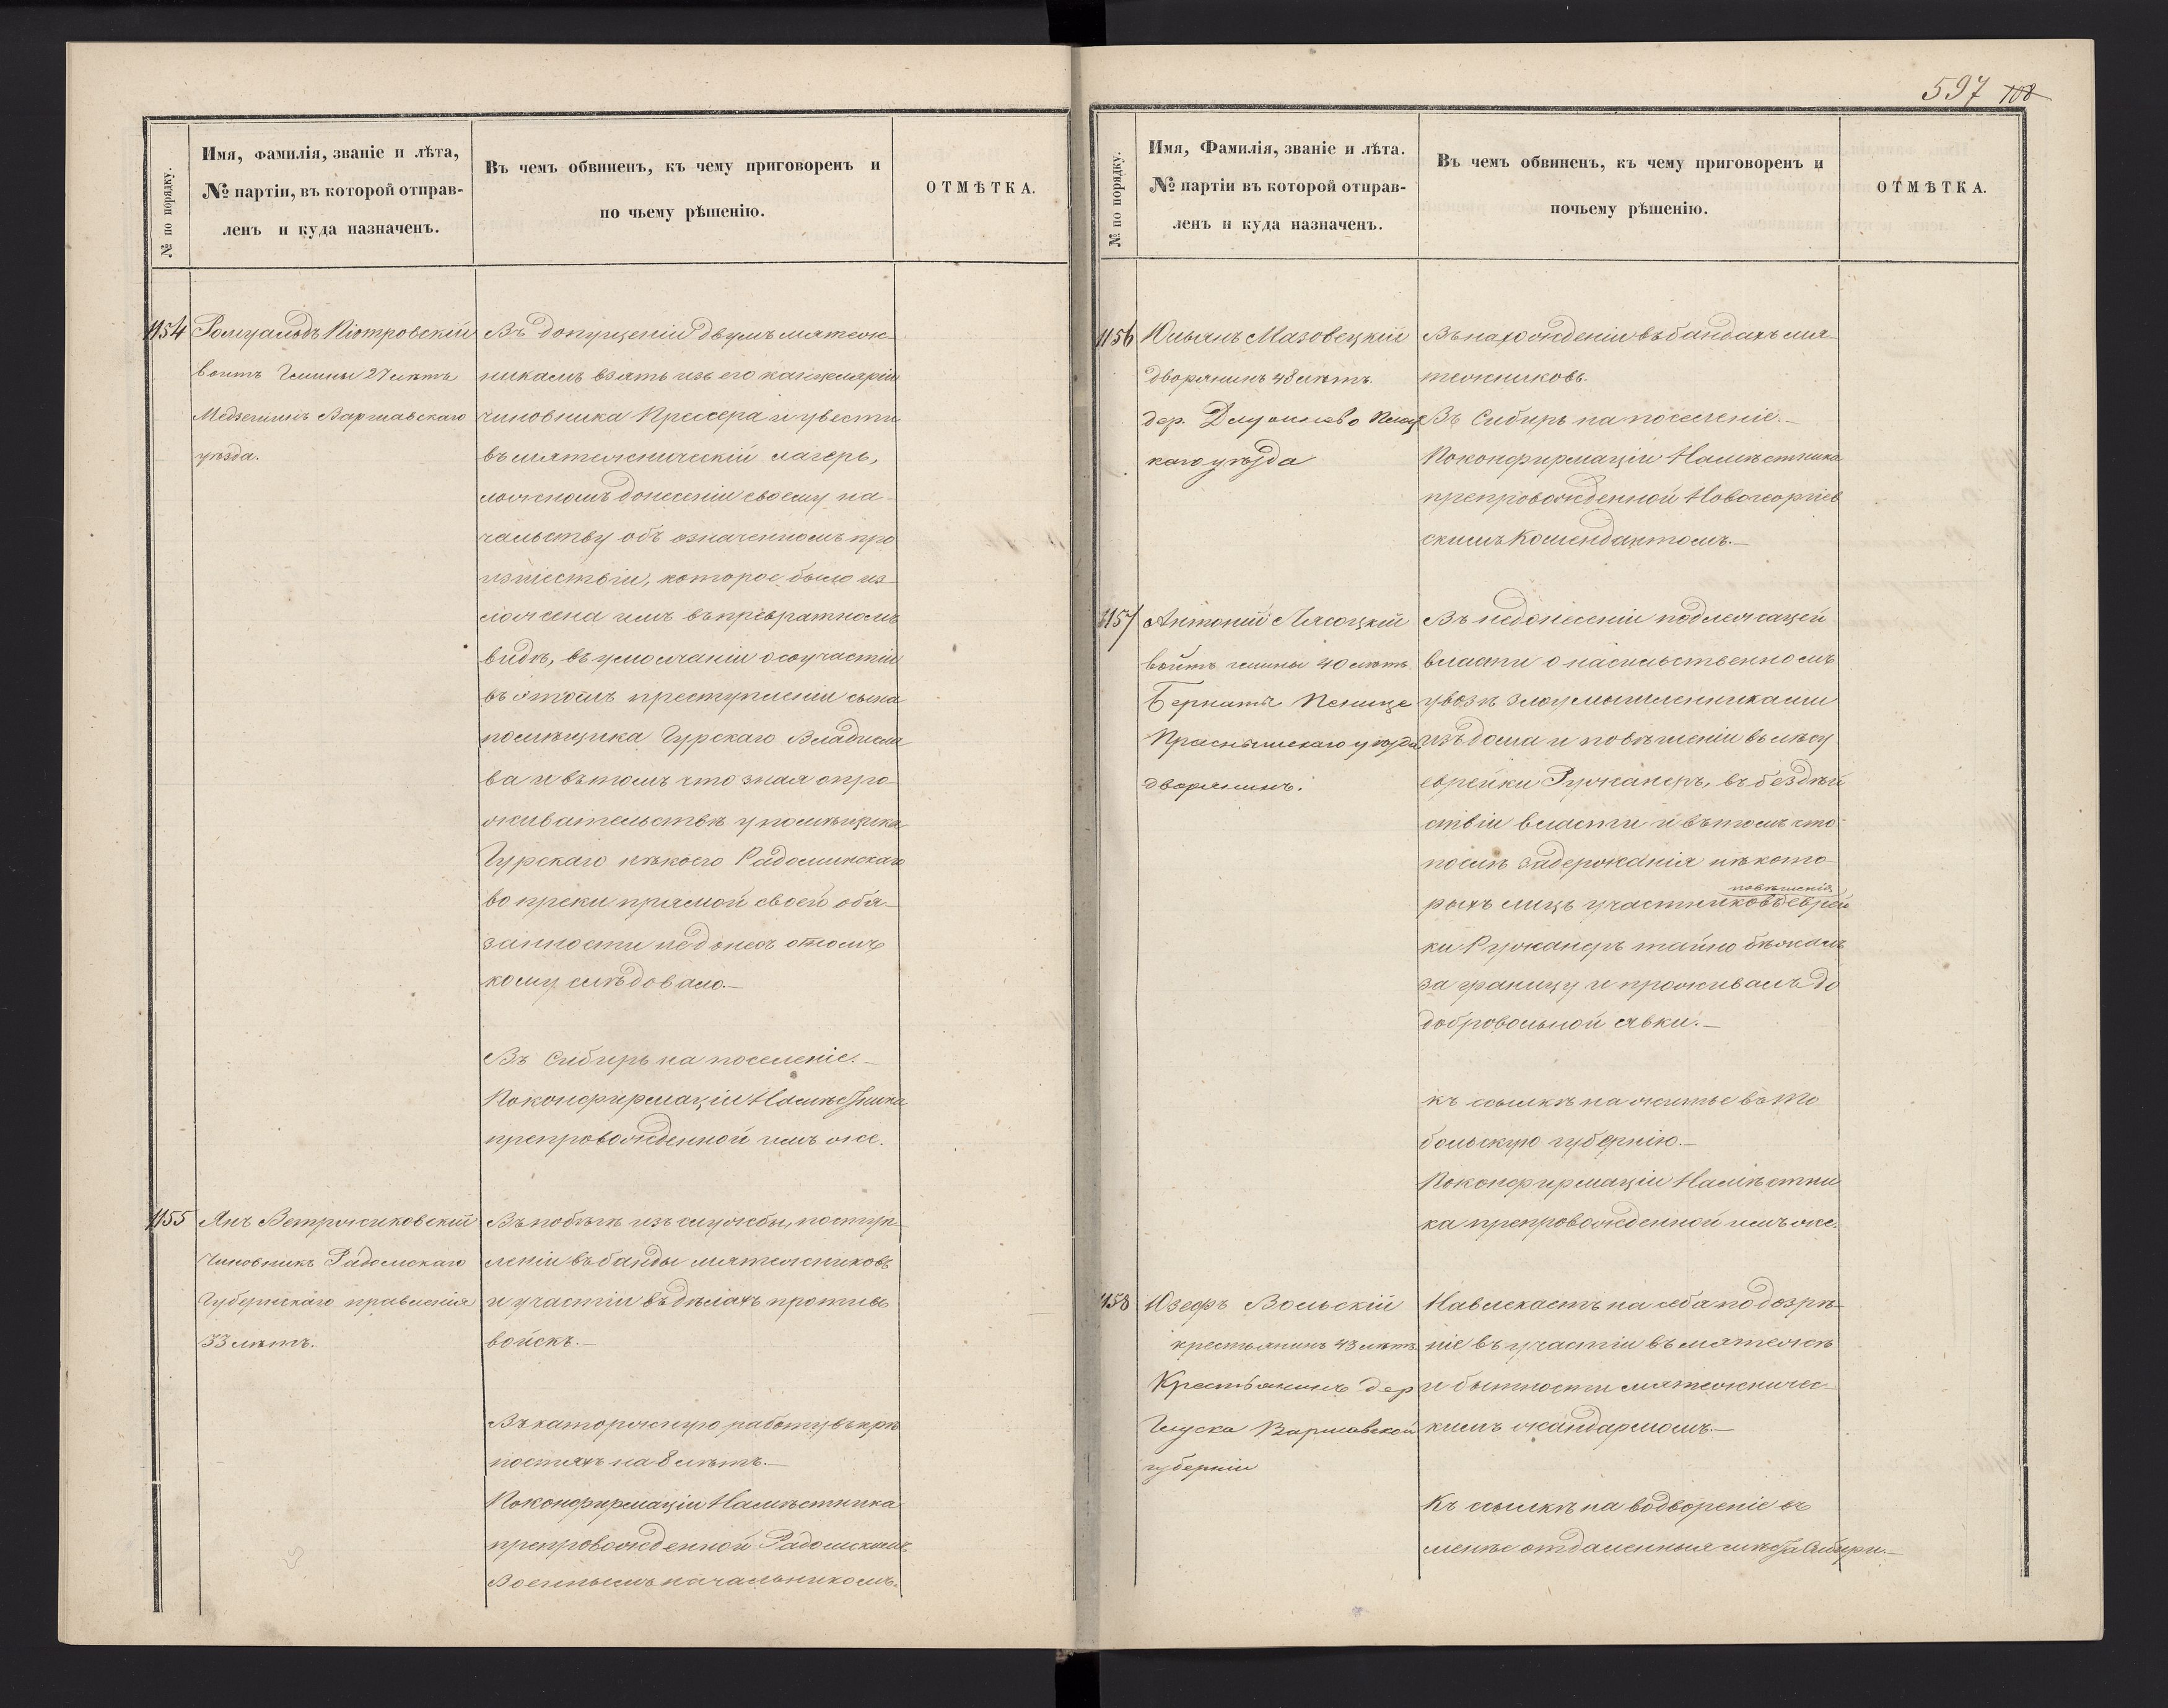 597 108
№ по порядку.
Имя, Фамилія, званіе и лѣта,
№ партіи, въ которой отправ-
ленъ и куда назначенъ.
Въ чемъ обвиненъ, къ чему приговоренъ и
по чьему рѣшенію.
ОТМѢТКА.
1154
Ромуальдъ Піотровскій
войтъ Гмины 27 лѣтъ
Медзешинъ Варшавскаго
уѣзда.
Въ допущеніи двумъ мятеж-
никамъ взять изъ его канцеляріи
чиновника Крисера и увести
въ мятежническій лагерь,
ложномъ донесеніи своему на-
чальству объ означенномъ про
изшествіи, которое было из-
ложена имъ въ превратномъ
видѣ, въ умолчаніи о соучастіи
въ этомъ преступленіи сына
помѣщика Гурскаго Владисла
ва и въ томъ что зная о про-
живательствѣ у помѣщика
Гурскаго нѣкоего Радоминскаго
вопреки прямой своей обя-
занности не донесъ о томъ
кому слѣдовало.—
Въ Сибирь на поселеніе.—
По конфирмаціи Намѣстника
препровожденной имъ же.
1155
Янъ Ветржиковскій
Чиновникъ Радомскаго
Губернскаго правленія
33 лѣтъ.
Въ побѣгѣ изъ службы, поступ-
леніи въ банды мятежниковъ
и участіи въ дѣлахъ противъ
войскъ.—
Въ каторжную работу въ крѣ
постяхъ на 8 лѣтъ.—
По конфирмаціи Намѣстника
препровожденной Радомскимъ
Военнымъ начальникомъ.
№ по порядку.
Имя, Фамилія, званіе и лѣта.
№ партіи въ которой отправ-
ленъ и куда назначенъ.
Въ чемъ обвиненъ, къ чему приговоренъ и
почьему рѣшенію.
ОТМѢТКА.
1156
Юльянъ Мазовецкій
дворянинъ 48 лѣтъ.
дер. Длужнево Плоц
каго уѣзда
Въ нахожденіи въ бандахъ мя-
тежниковъ.
Въ Сибирь на поселеніе.—
По конфирмаціи Намѣстника
препровожденной Новогеоргіев
скимъ Комендантомъ.—
1157
Антоній Лясоцкій
войтъ гмины 40 лѣтъ.
Бернаты
Праснышскаго уѣзда
дворянинъ.
Въ недонесеніи подлежащей
власти о насильственномъ
увозѣ злоумышленниками
изъ дома и повѣшеніи въ лѣсу
еврейки Ружанеръ, въ бездѣй
ствіи власти и въ томъ что
послѣ задержанія нѣкото-
повѣшенія
рыхъ лицъ участниковъ еврей
ки Ружанеръ тайно бѣжалъ
за границу и проживалъ до
добровольной явки.—
къ ссылкѣ на житье въ То
больскую губернію.—
По конфирмаціи Намѣстни
ка препровожденной имъ же.
1158
Юзефъ Вольскій
крестьянинъ 43 лѣтъ.
Крестьянинъ дер
Глуска Варшавской
губерніи
Навлекаетъ на себя подозрѣ-
ніе въ участіи въ мятежѣ
и бытности мятежничес-
кимъ жандармомъ.—
Къ ссылкѣ на водвореніе въ
менѣе отдаленныя мѣста Сибири.—